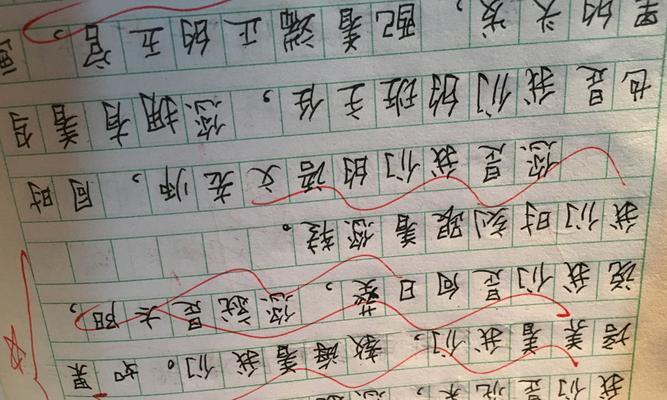 我们是
培养着我们，教诲着我们。如果
说我们是向日葵，您就是太阳，
我们时刻跟着您转。
您是我们的语文老师，同时
也是我们的班主任，您拥有着乌
黑的头发，配着端正的五官，